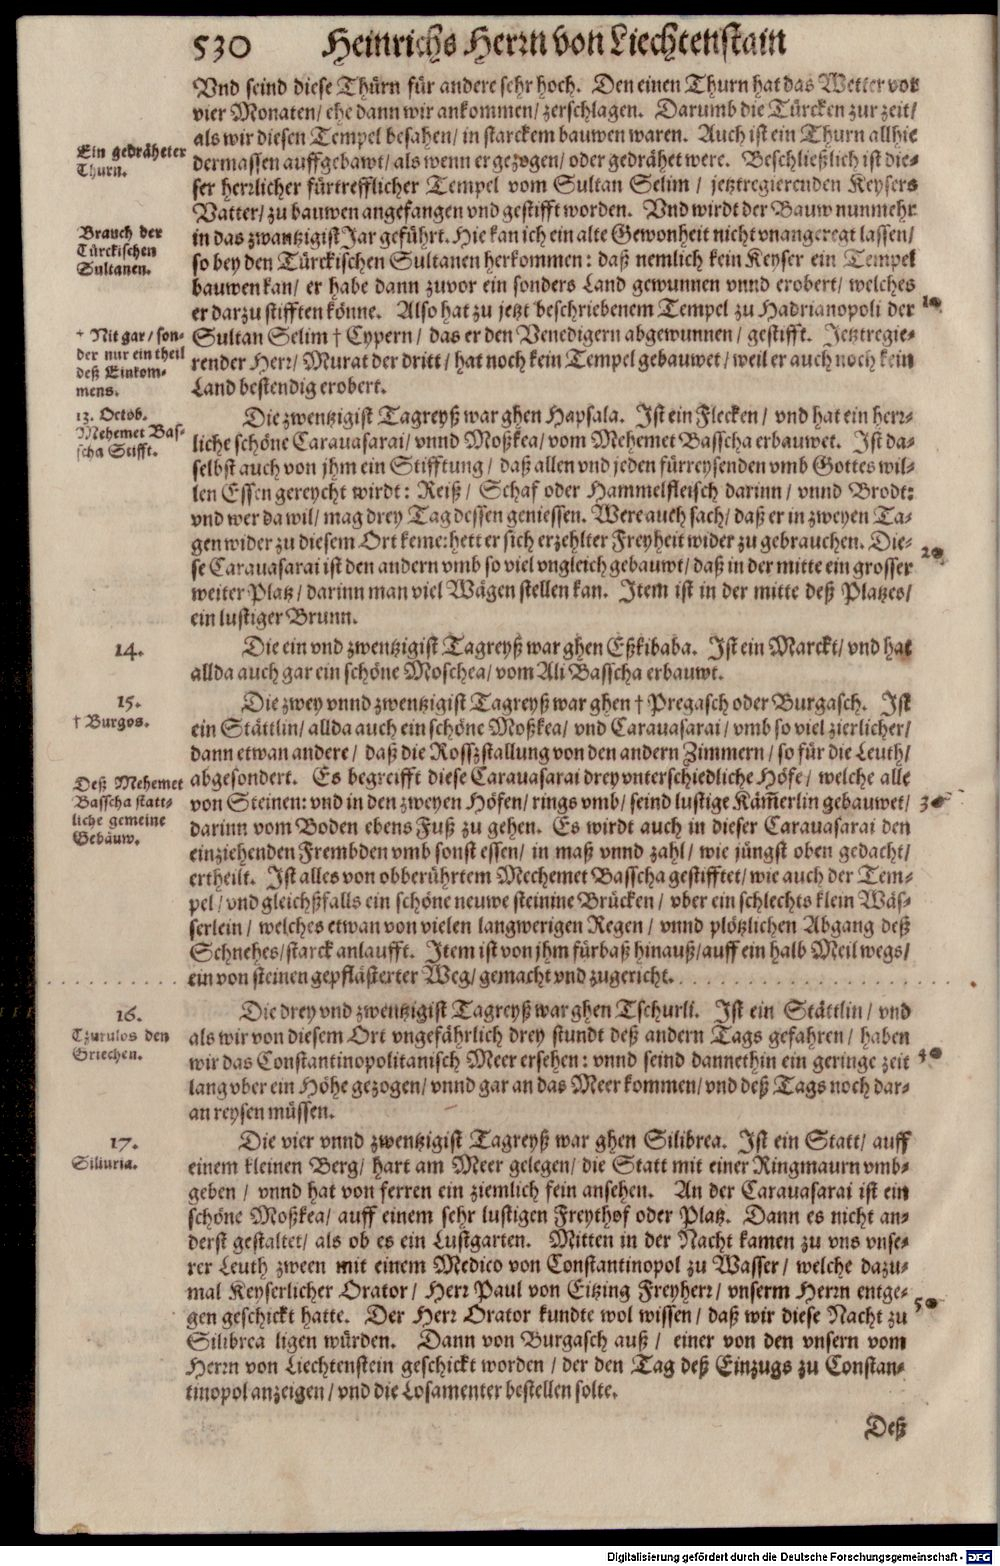 530 Heinrichs Herrn von Liechtenstain
Vnd seind diese Thürn für andere sehr hoch. Den einen Thurn hat das Wetter vor
vier Monaten/ ehe dann wir ankommen/ zerschlagen. Darumb die Türcken zur zeit/
als wir diesen Tempel besahen/ in starckem bauwen waren. Auch ist ein Thurn allhie
Ein gedräheter
Thurn.
dermassen auffgebawt/ als wenn er gezogen/ oder gedrähet were. Beschließlich ist die-
ser herrlicher fürtrefflicher Tempel vom Sultan Selim / jetztregierenden Keysers
Vatter/ zu bauwen angefangen vnd gestifft worden. Vnd wirdt der Bauw nunmehr
Brauch der
Türckischen
Sultanen.
in das zwantzigist Jar geführt. Hie kan ich ein alte Gewonheit nicht vnangeregt lassen/
so bey den Türckischen Sultanen herkommen: daß nemlich kein Keyser ein Tempel
bauwen kan/ er habe dann zuvor ein sonders Land gewunnen vnnd erobert/ welches
er darzu stifften könne. Also hat zu jetzt beschriebenem Tempel zu Hadrianopoli der
10
† Nit gar/ son-
der nur ein theil
deß Einkom-
mens.
Sultan Selim † Cypern/ das er den Venedigern abgewunnen/ gestifft. Jetztregie-
render Herr/ Murat der dritt/ hat noch kein Tempel gebauwet/ weil er auch noch kein
Land bestendig erobert.
13. Octob.
Mehemet Bas-
scha Stifft.
Die zwentzigist Tagreyß war ghen Hapsala. Ist ein Flecken/ vnd hat ein herr-
liche schöne Carauasarai/ vnnd Moßkea/ vom Mehemet Basscha erbauwet. Ist da-
selbst auch von jhm ein Stifftung/ daß allen vnd jeden fürreysenden vmb Gottes wil-
len Essen gereycht wirdt: Reiß/ Schaf oder Hammelfleisch darinn/ vnnd Brodt:
vnd wer da wil/ mag drey Tag dessen geniessen. Were auch sach/ daß er in zweyen Ta-
gen wider zu diesem Ort keme: hett er sich erzehlter Freyheit wider zu gebrauchen. Die-
20
se Carauasarai ist den andern vmb so viel vngleich gebauwt/ daß in der mitte ein grosser
weiter Platz/ darinn man viel Wägen stellen kan. Item ist in der mitte deß Platzes/
ein lustiger Brunn.
14.
Die ein vnd zwentzigist Tagreyß war ghen Eßkibaba. Ist ein Marckt/ vnd hat
allda auch gar ein schöne Moschea/ vom Ali Basscha erbauwt.
15.
† Burgos.
Die zwey vnnd zwentzigist Tagreyß war ghen † Pregasch oder Burgasch. Ist
ein Stättlin/ allda auch ein schöne Moßkea/ vnd Carauasarai/ vmb so viel zierlicher/
dann etwan andere/ daß die Rossstallung von den andern Zimmern/ so für die Leuth/
Deß Mehemet
Basscha statt-
liche gemeine
Gebäuw.
abgesondert. Es begreifft diese Carauasarai drey vnterschiedliche Höfe/ welche alle
von Steinen: vnd in den zweyen Höfen/ rings vmb/ seind lustige Käm̄erlin gebauwet/
30
darinn vom Boden ebens Fuß zu gehen. Es wirdt auch in dieser Carauasarai den
einziehenden Frembden vmb sonst essen/ in maß vnnd zahl/ wie jüngst oben gedacht/
ertheilt. Ist alles von obberührtem Mechemet Basscha gestifftet/ wie auch der Tem-
pel/ vnd gleichßfalls ein schöne neuwe steinine Brücken/ vber ein schlechts klein Wäs-
serlein/ welches etwan von vielen langwerigen Regen/ vnnd plötzlichen Abgang deß
Schnehes/ starck anlaufft. Item ist von jhm fürbaß hinauß/ auff ein halb Meil wegs/
ein von steinen gepflästerter Weg/ gemacht vnd zugericht.
16.
Tzurulos den
Griechen.
Die drey vnd zwentzigist Tagreyß war ghen Tschurli. Ist ein Stättlin/ vnd
als wir von diesem Ort vngefährlich drey stundt deß andern Tags gefahren/ haben
wir das Constantinopolitanisch Meer ersehen: vnnd seind dannethin ein geringe zeit
40
lang vber ein Höhe gezogen/ vnnd gar an das Meer kommen/ vnd deß Tags noch dar-
an reysen müssen.
17.
Siliuria.
Die vier vnnd zwentzigist Tagreyß war ghen Silibrea. Ist ein Statt/ auff
einem kleinen Berg/ hart am Meer gelegen/ die Statt mit einer Ringmaurn vmb-
geben / vnnd hat von ferren ein ziemlich fein ansehen. An der Carauasarai ist ein
schöne Moßkea/ auff einem sehr lustigen Freythof oder Platz. Dann es nicht an-
derst gestaltet/ als ob es ein Lustgarten. Mitten in der Nacht kamen zu vns vnse-
rer Leuth zween mit einem Medico von Constantinopol zu Wasser/ welche dazu-
mal Keyserlicher Orator/ Herr Paul von Eitzing Freyherr/ vnserm Herrn entge-
gen geschickt hatte. Der Herr Orator kundte wol wissen/ daß wir diese Nacht zu
50
Silibrea ligen würden. Dann von Burgasch auß/ einer von den vnsern vom
Herrn von Liechtenstein geschickt worden/ der den Tag deß Einzugs zu Constan-
tinopol anzeigen/ vnd die Losamenter bestellen solte.
Deß
Digitalisierung gefördert durch die Deutsche Forschungsgemeinschaft - DFG